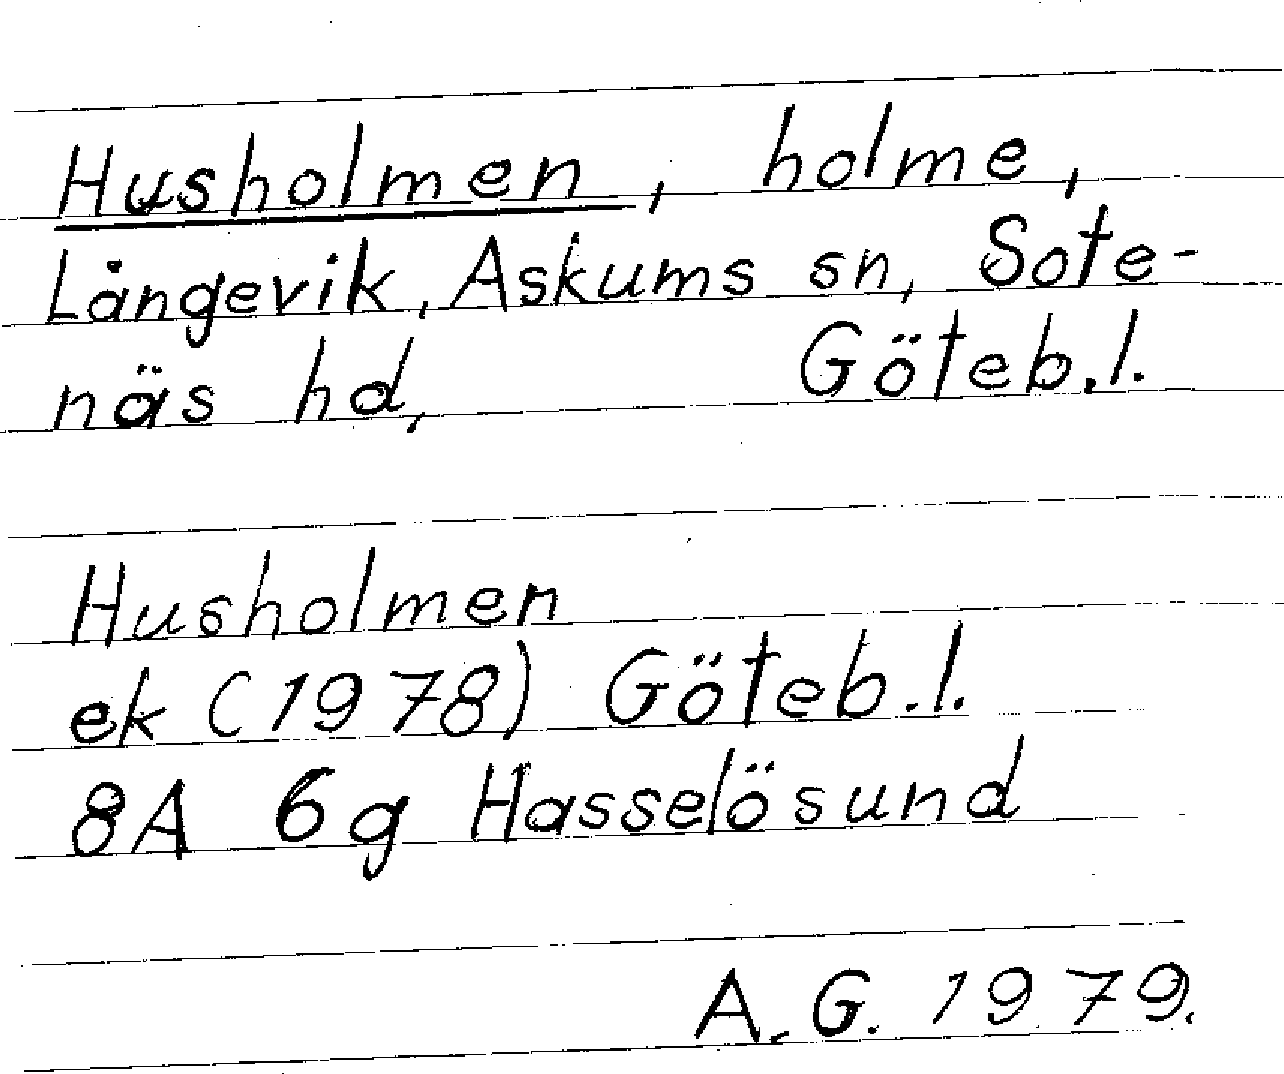 Husholmen, holme,
Långevik, Askums sn, Sote-
näs hd, Göteb.l.
Husholmen
ek (1978) Göteb.l.
8A 6g Hasselösund
A.G. 1979.